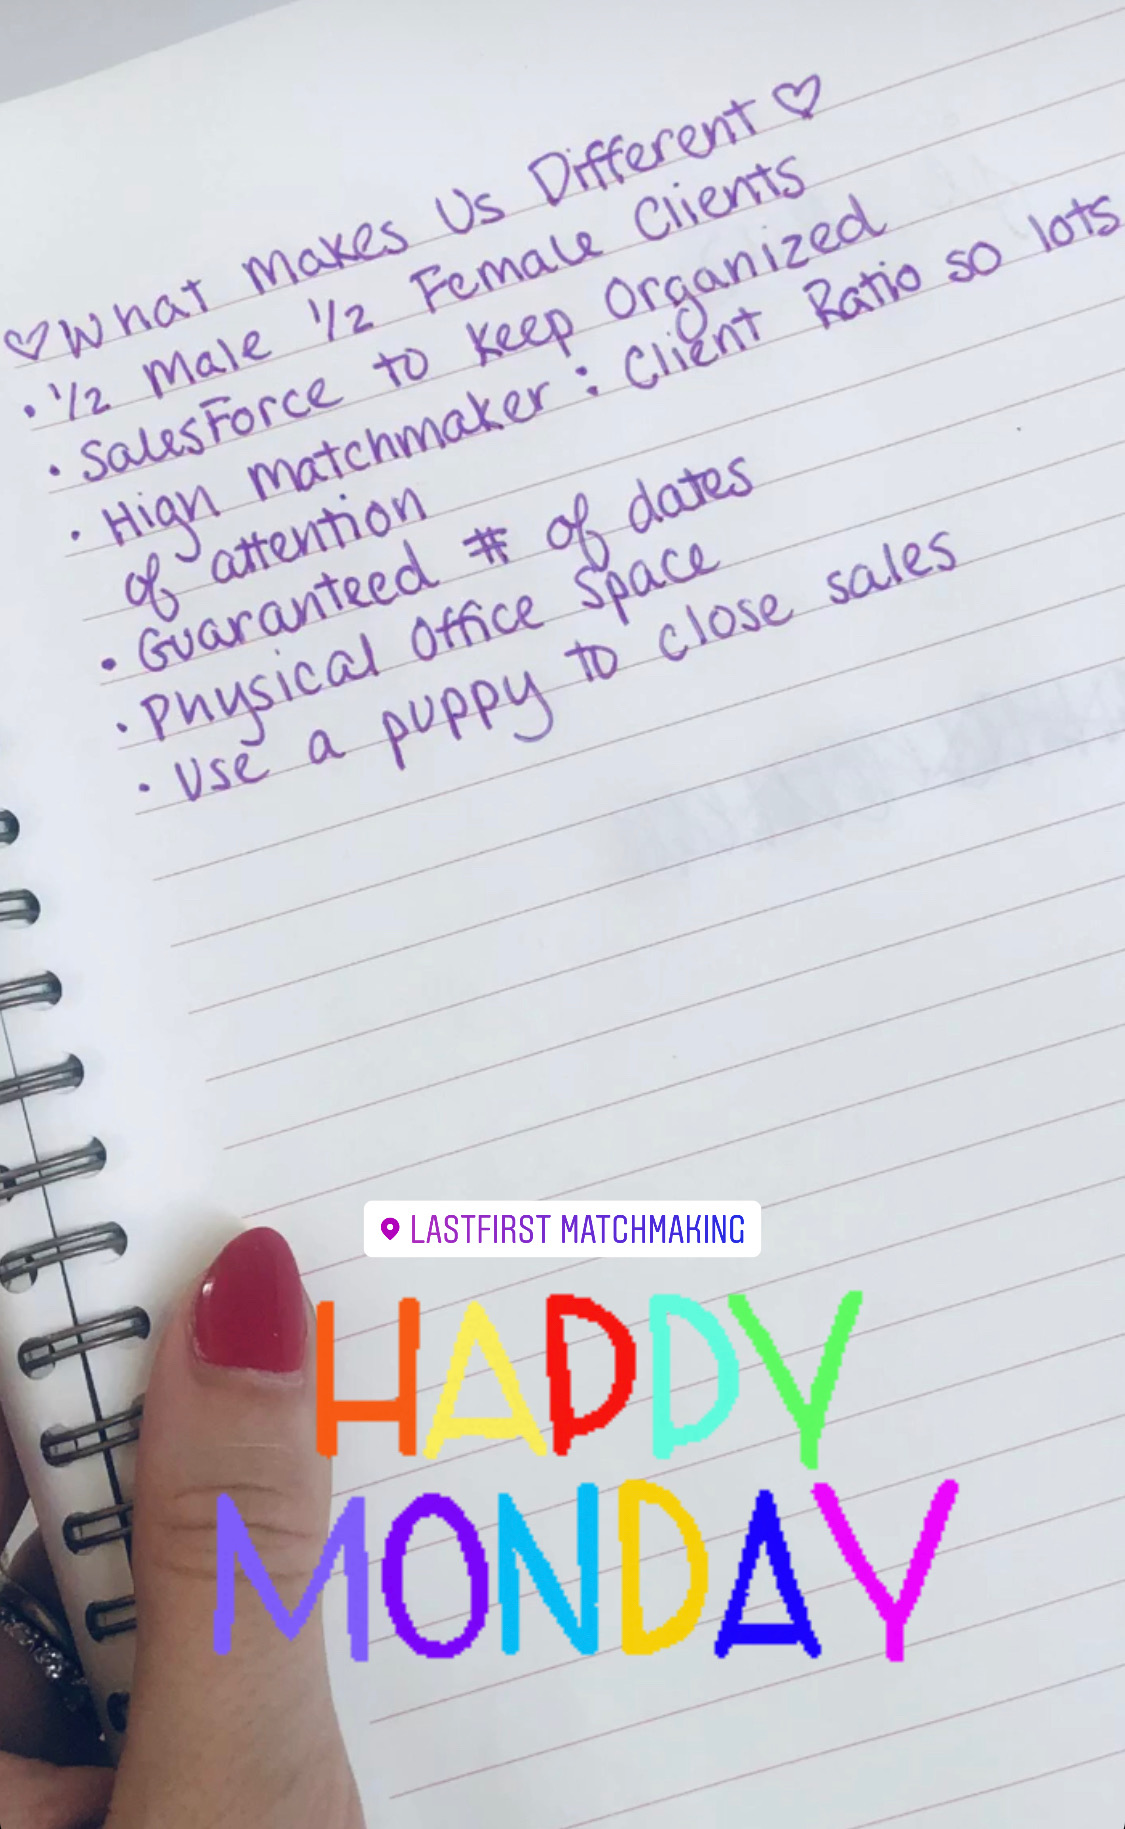 ♡What Makes Us Different♡
• 1/2 Male 1/2 Female Clients
• SalesForce to Keep Organized
• High Matchmaker : Client Ratio so lots
of attention
• Guaranteed # of dates
• Physical Office Space
• Use a puppy to close sales
LASTFIRST MATCHMAKING
HAPPY
MONDAY